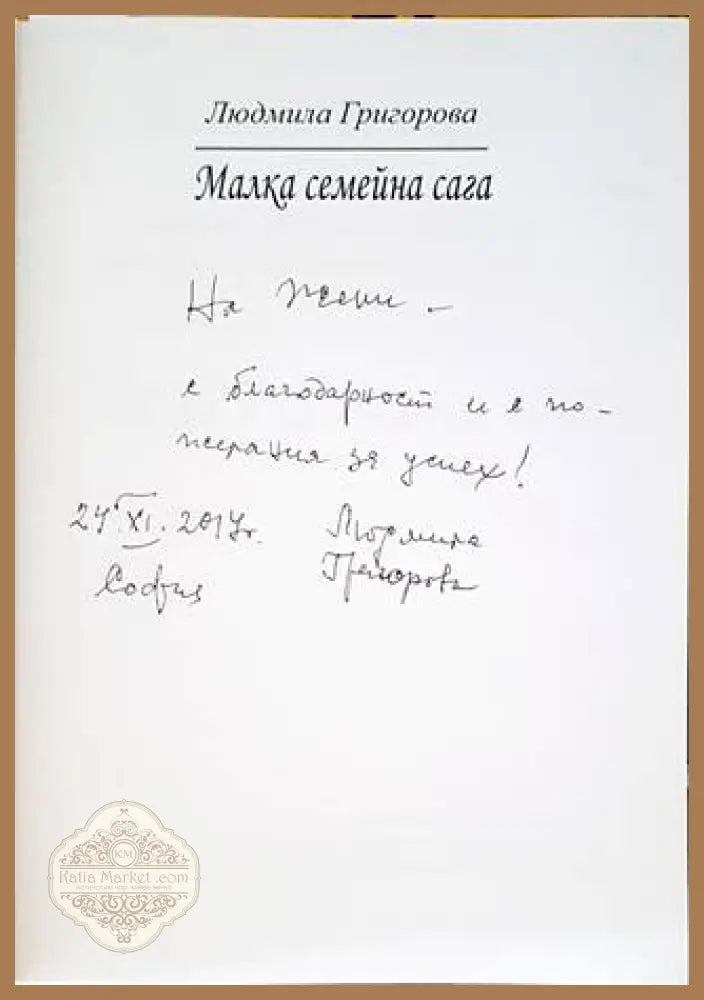 Людмила Григорова
Малка семейна сага
На Жени -
с благодарност и с по-
желания за успех!
24 XI. 2017г.
Людмила
Григорова
София
KM
Katia Market .com